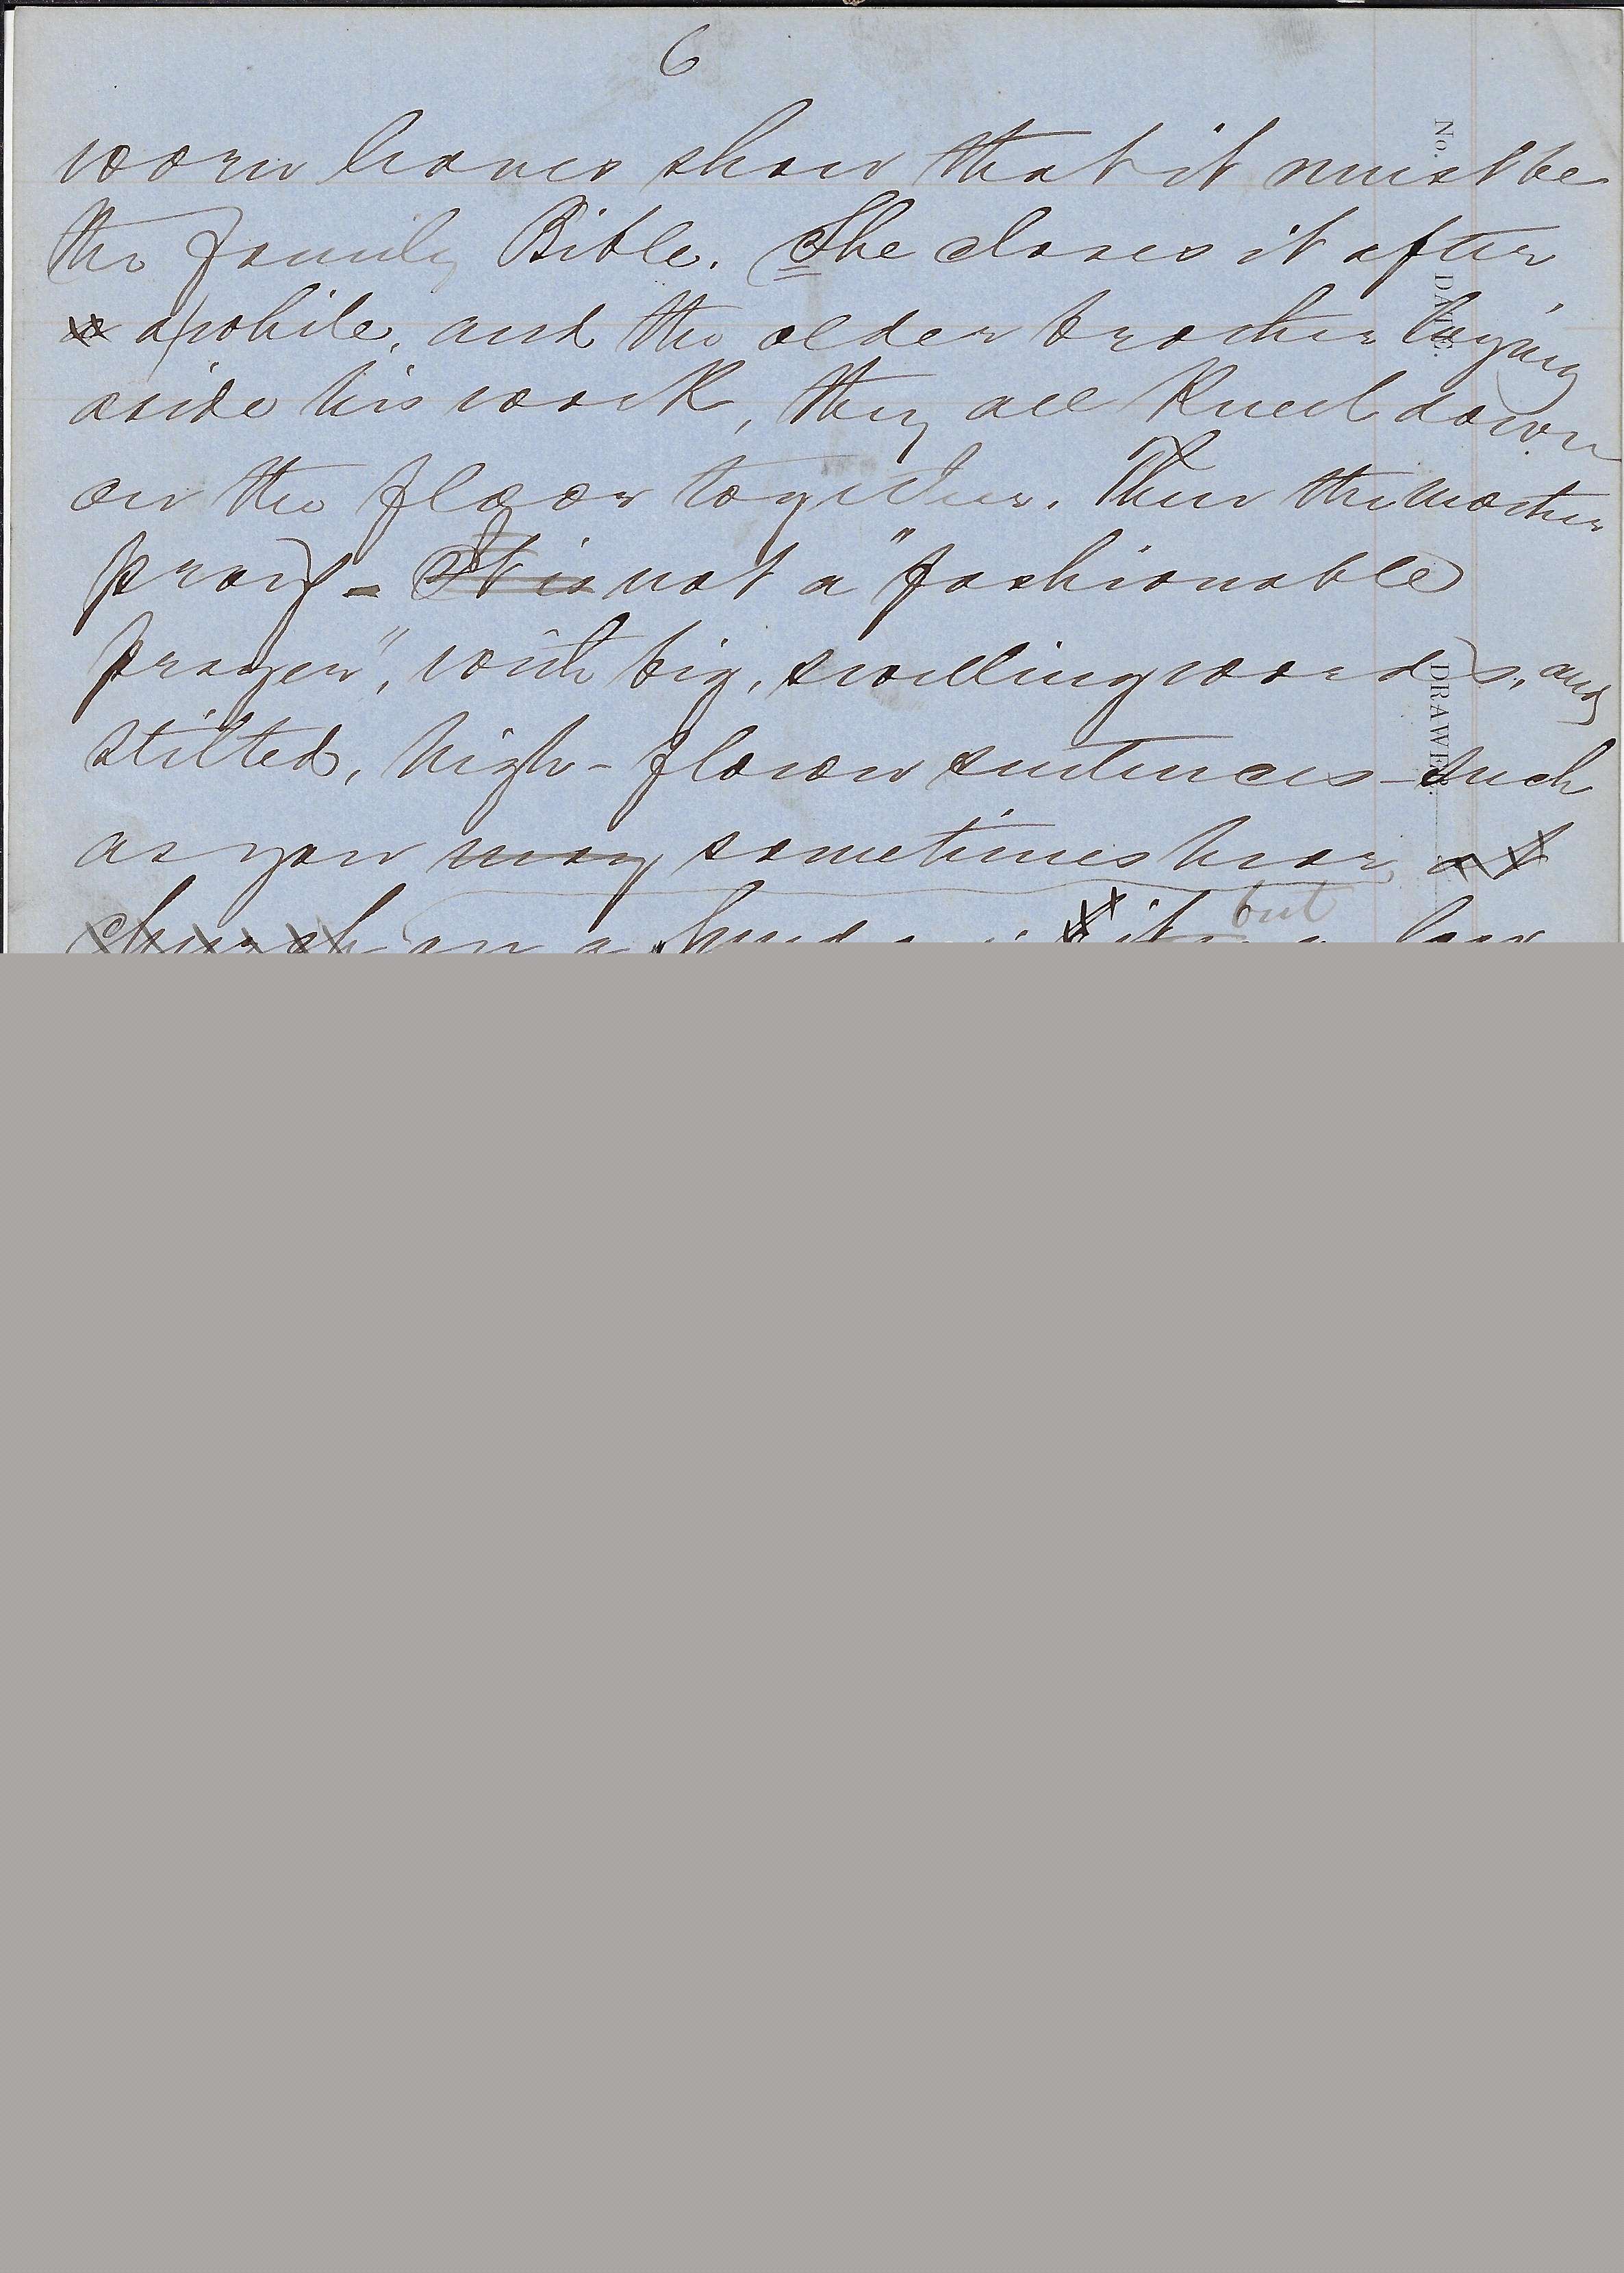 6
worn leaves show that it must be
the family Bible. She closes it after
a while, and the older brother laying
aside his work, they all kneel down
on the floor together. Then the mother
prays - It is not a "fashionable
prayer", with big, swelling words, and
stilted, high-flown sentences - such
as you may sometimes hear at
but
church on a
No. DATE. DRAWER.